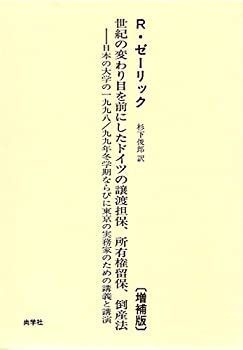 R・ゼーリック
杉下俊郎 訳
世紀の変わり目を前にしたドイツの譲渡担保、所有権留保、倒産法
──日本の大学の一九九八／九九年冬学期ならびに東京の実務家のための講義と講演
〔増補版〕
尚学社